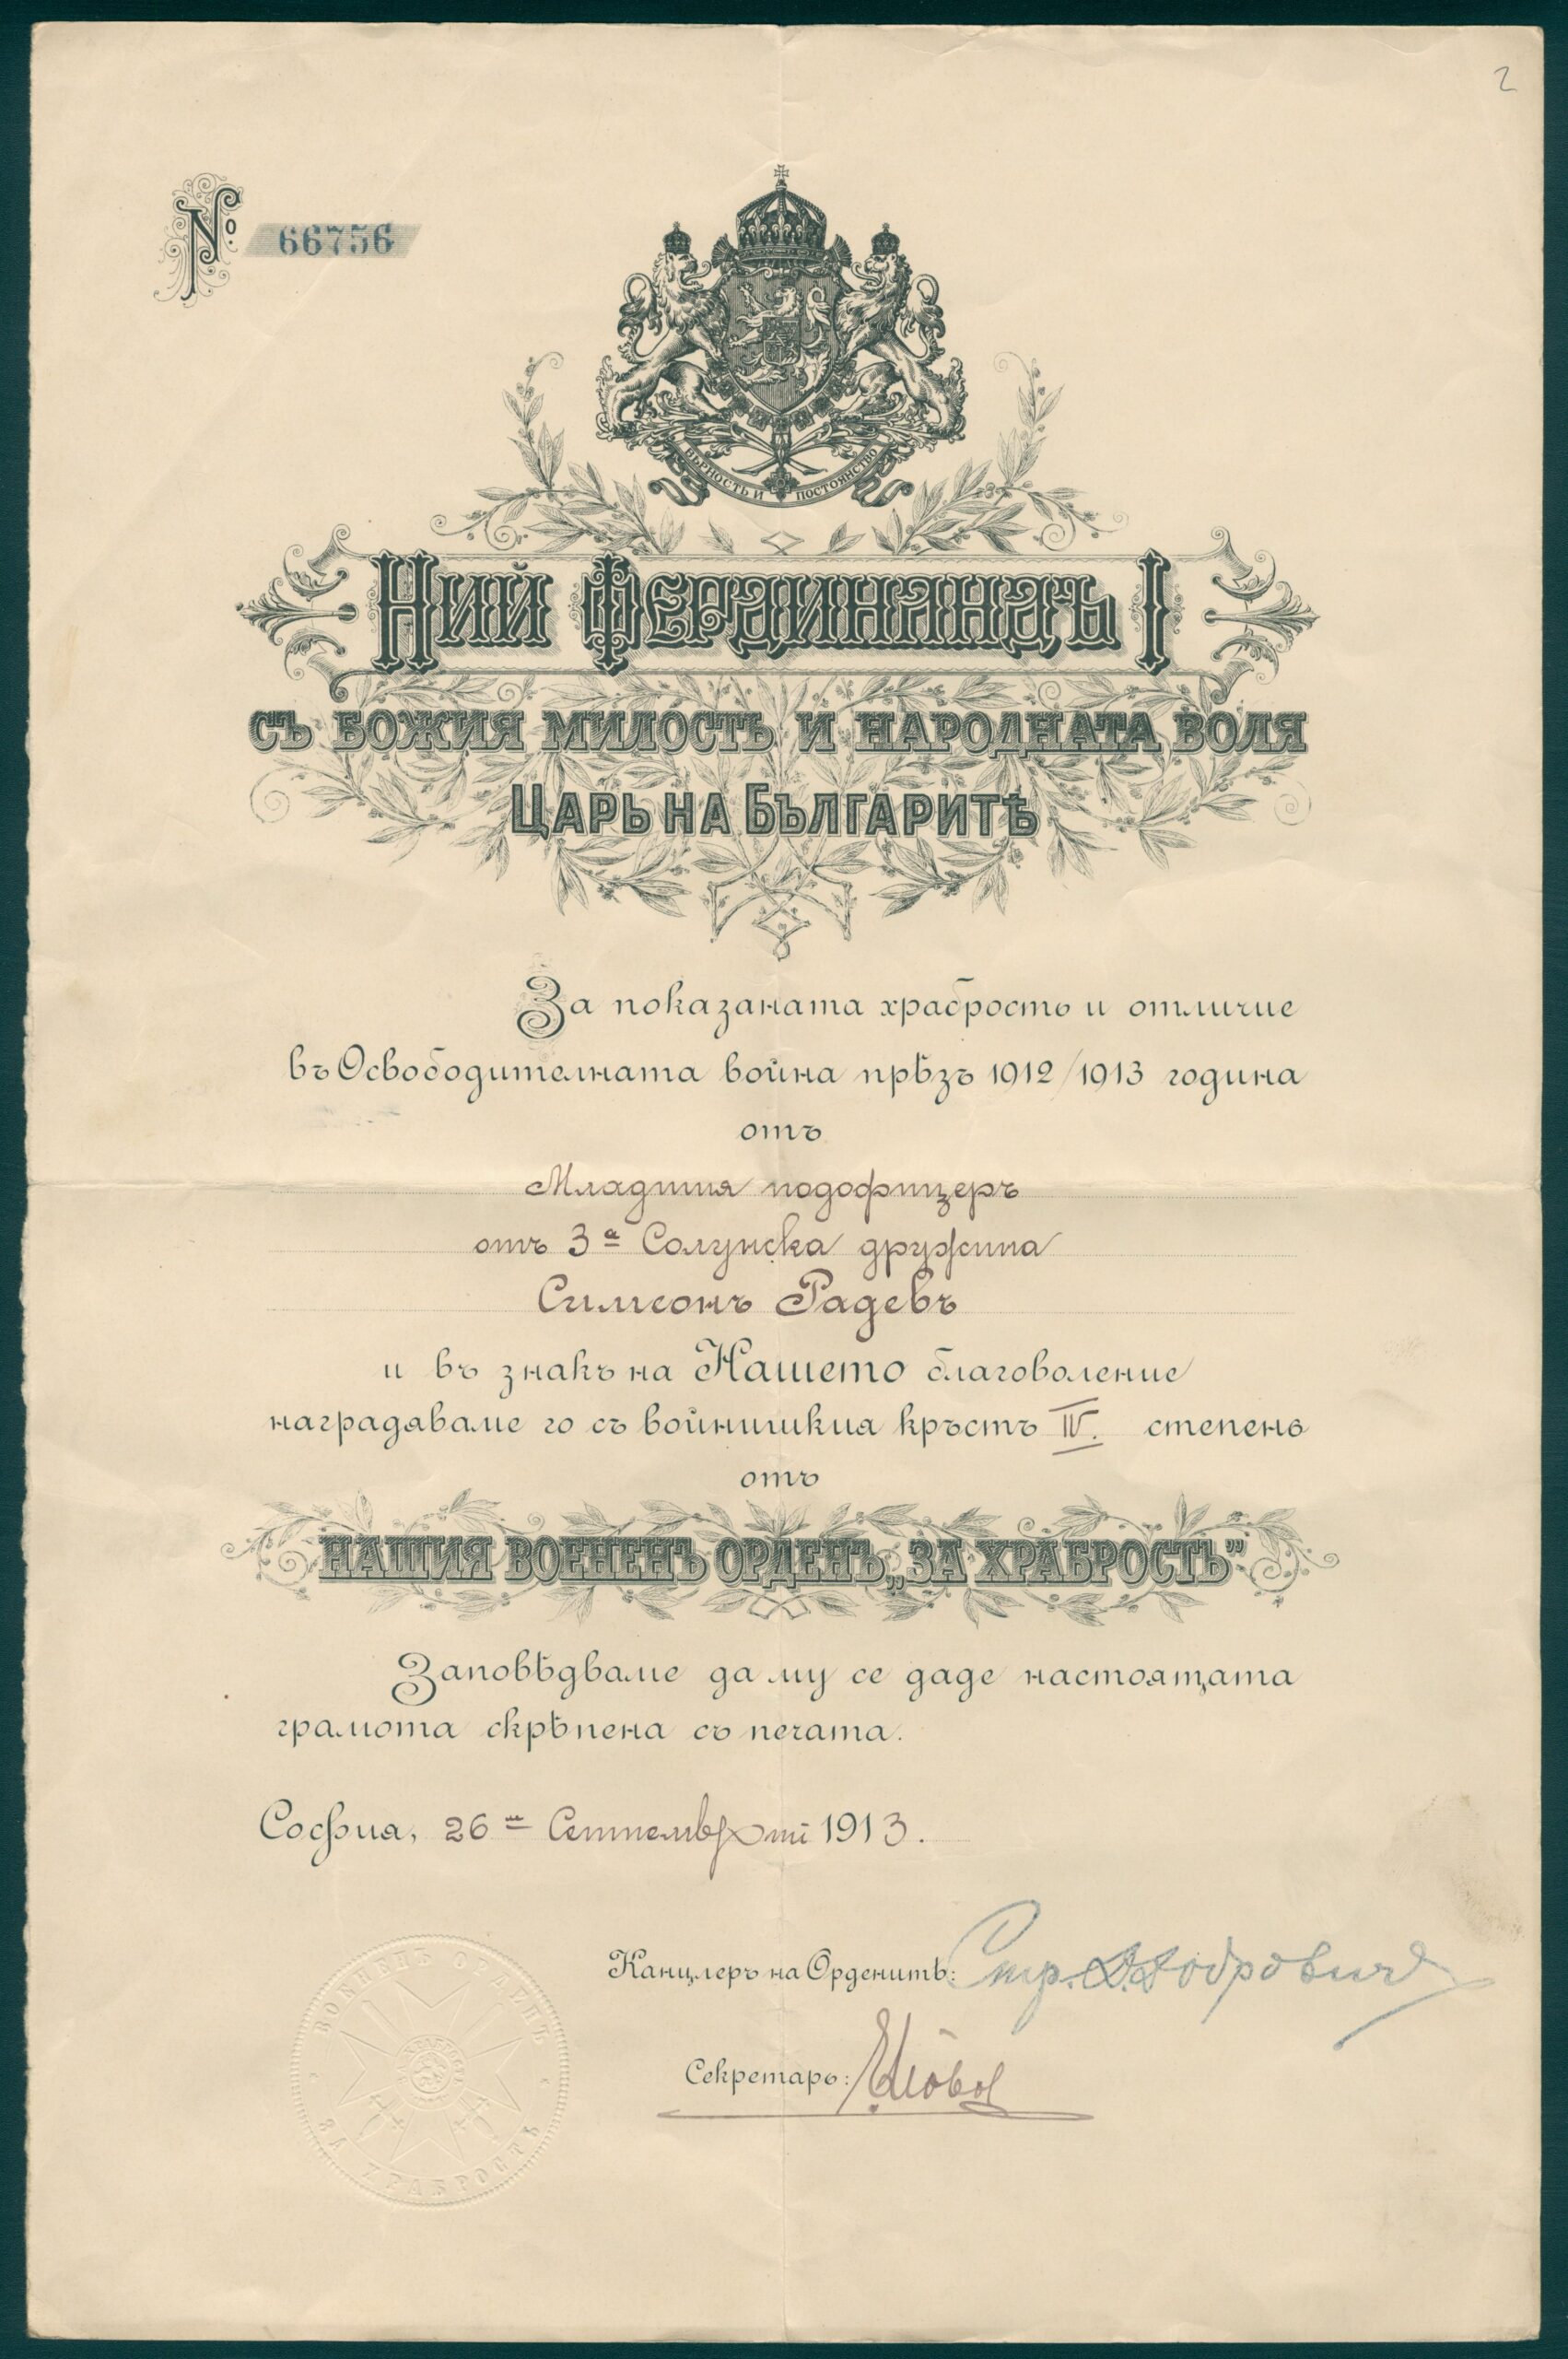 2
№ 66756
ВѢРНОСТЬ И ПОСТОЯНСТВО
НИЙ ФЕРДИНАНДЪ I
СЪ БОЖИЯ МИЛОСТЬ И НАРОДНАТА ВОЛЯ
ЦАРЬ НА БЪЛГАРИТѢ
За показаната храбрость и отличие
въ Освободителната война прѣзъ 1912/1913 година
отъ
Младшия подофицеръ
отъ 3а Солунска дружина
Симеонъ Радевъ
и въ знакъ на Нашето благоволение
награждаваме го съ войнишкия кръстъ IV. степень
отъ
НАШИЯ ВОЕНЕНЪ ОРДЕНЪ „ЗА ХРАБРОСТЬ”
Заповѣдваме да му се даде настоящата
грамота скрѣпена съ печата.
София, 26 Септемврий 1913.
Канцлеръ на Орденитѣ: Стр. Д. Добровичъ
Секретарь:
ВОЕНЕНЪ ОРДЕНЪ
ЗА ХРАБРОСТЬ